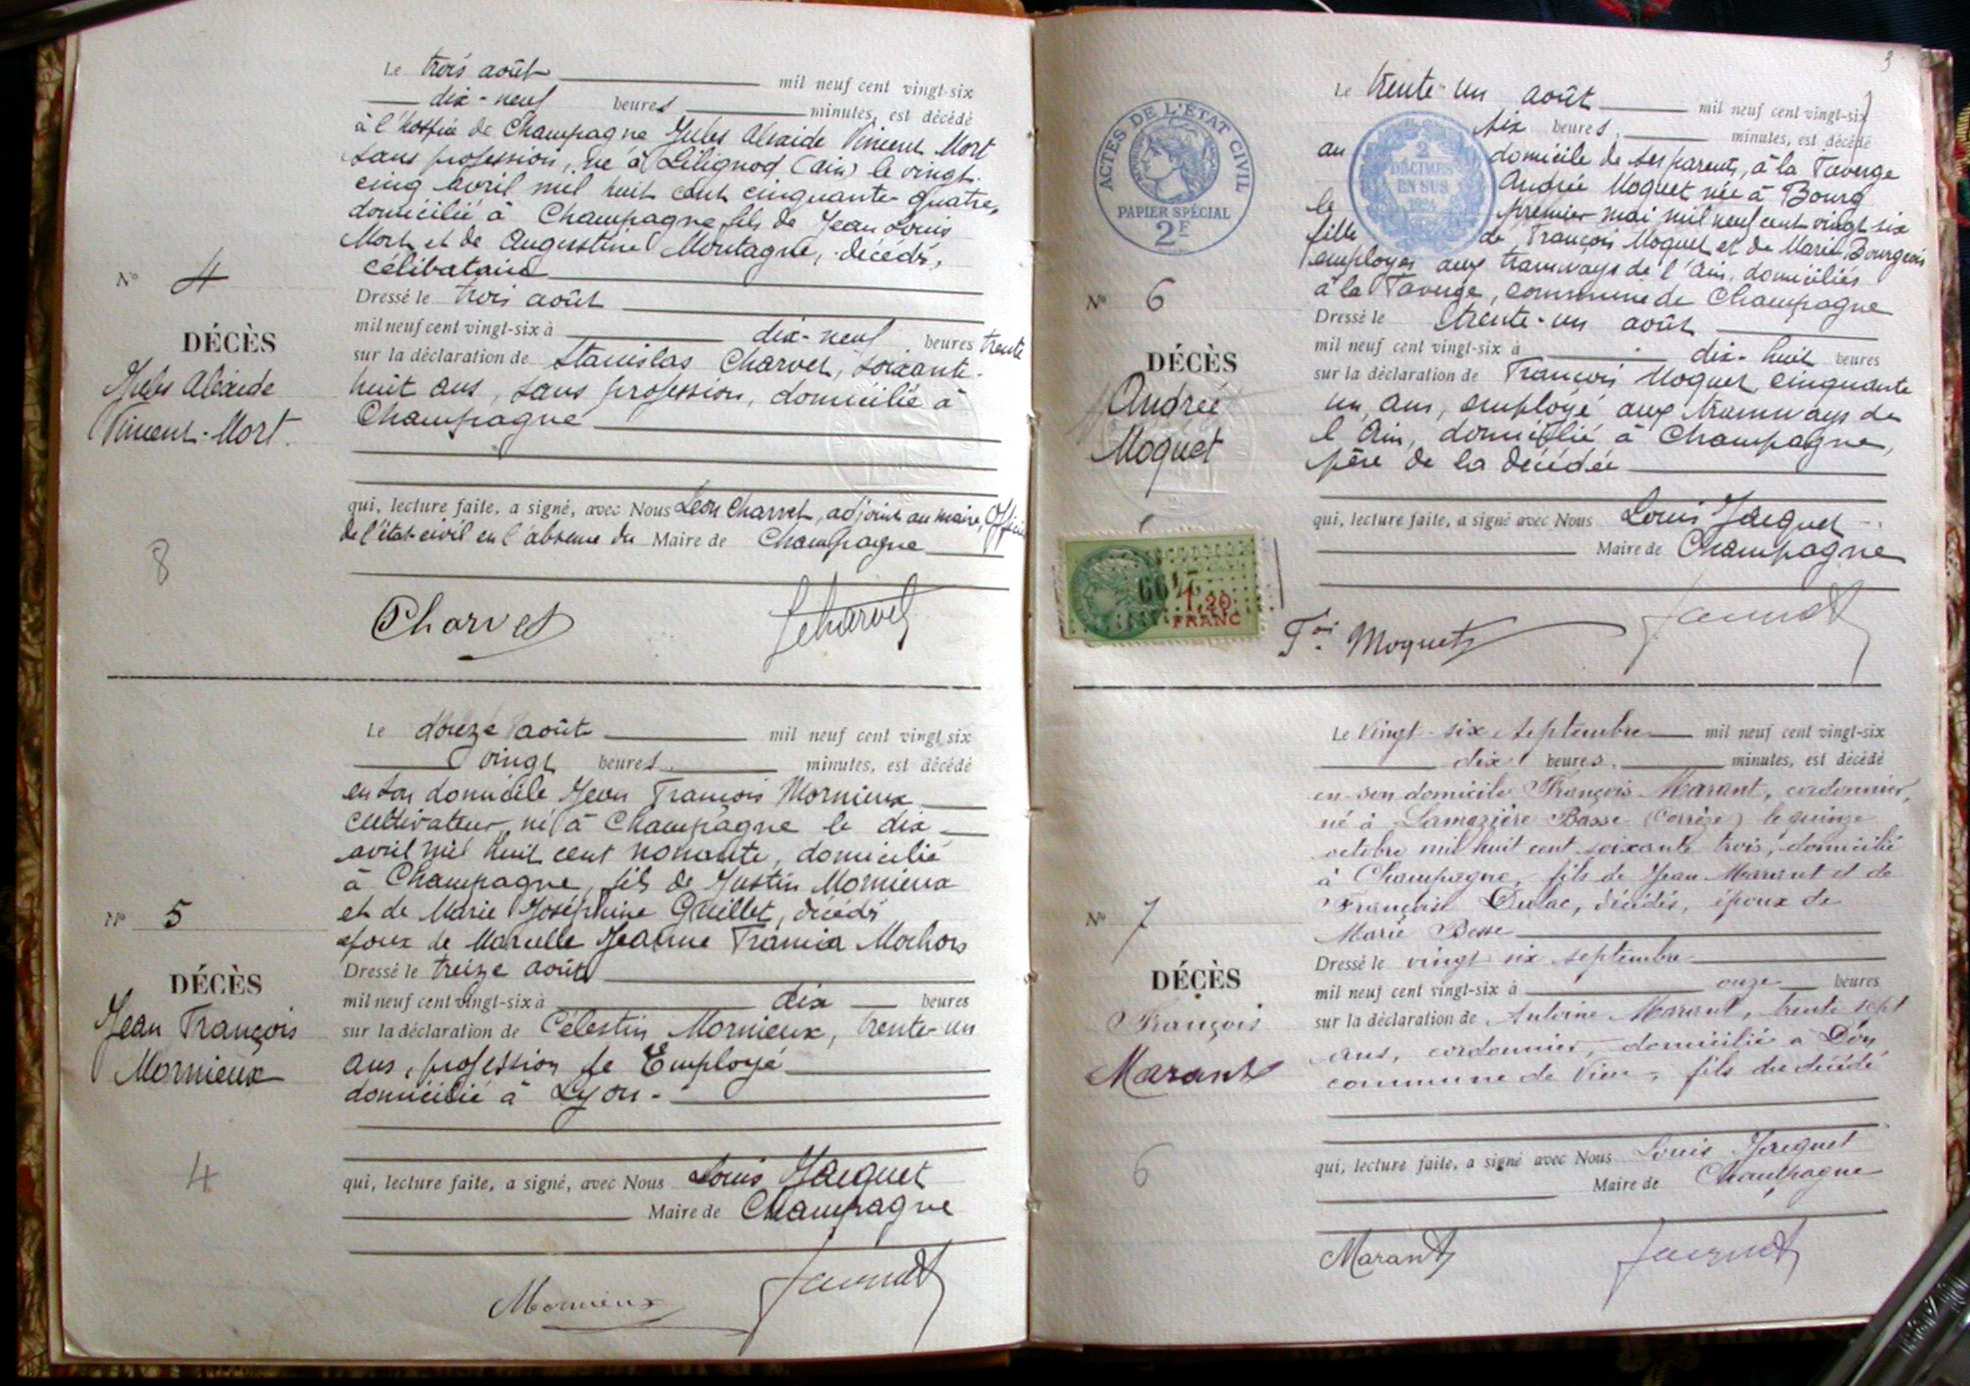 Le trois août mil neuf cent vingt-six
dix-neuf heures minutes, est décédé
à l'hospice de Champagne Jules Alexide Vincent Mort
sans profession, né à Lilignod (Ain) le vingt-
cinq avril mil huit cent cinquante-quatre,
domicilié à Champagne, fils de Jean Louis
Mort et de Augustine Montagne, décédés,
célibataire
N° 4
DÉCÈS
Jules Alexide
Vincent-Mort.
8
Dressé le trois août
mil neuf cent vingt-six à dix-neuf heures trente
sur la déclaration de Stanislas Charvet, soixante-
huit ans, sans profession, domicilié à
Champagne
qui, lecture faite, a signé, avec Nous Léon Charvet, adjoint au maire, Officier
de l'état-civil en l'absence du Maire de Champagne
Charvet
Le douze août mil neuf cent vingt six
vingt heures minutes, est décédé
en son domicile Jean François Mornieux
cultivateur né à Champagne le dix
avril mil huit cent nonante, domicilié
à Champagne, fils de Justin Mornieux
et de Marie Joséphine Guillet, décédés
époux de Marcelle Jeanne Francia Mochors
N° 5
DÉCÈS
Jean François
Mornieux
4
Dressé le treize août
mil neuf cent vingt-six à dix heures
sur la déclaration de Célestin Mornieux, trente-un
ans, profession de Employé
domicilié à Lyon.
qui, lecture faite, a signé, avec Nous Louis Jacquet
Maire de Champagne
Mornieux Jacquet
3
Le trente-un août mil neuf cent vingt-six
six heures, minutes, est décédé
au domicile de ses parents, à la Taverge
Andrée Moquet née à Bourg
le premier mai mil neuf cent vingt six
fille de François Moquet et de Marie Bourgeois
employés aux tramways de l'Ain, domiciliés
à la Taverge, commune de Champagne
ACTES DE L'ÉTAT CIVIL
PAPIER SPÉCIAL
2F
2
DÉCIMES
EN SUS
N° 6
DÉCÈS
Andrée
Moquet
1,20
FRANC
Dressé le trente-un août
mil neuf cent vingt-six à dix-huit heures
sur la déclaration de François Moquet cinquante
un ans, employé aux tramways de
l'Ain, domicilié à Champagne,
père de la décédée
qui, lecture faite, a signé avec Nous Louis Jacquet
Maire de Champagne
Fois Moquet Jacquet
Le vingt-six septembre mil neuf cent vingt-six
dix heures, minutes, est décédé
en son domicile François Marant, cordonnier,
né à Lamazière Basse (Corrèze) le quinze
octobre mil huit cent soixante trois, domicilié
à Champagne, fils de Jean Marant et de
Françoise Dulac, décédés, époux de
Marie Besse
N° 7
DÉCÈS
François
Marant
6
Dressé le vingt six septembre
mil neuf cent vingt-six à onze heures
sur la déclaration de Antoine Marant, trente sept
ans, cordonnier, domicilié à Don
commune de Vieu, fils du décédé
qui, lecture faite, a signé avec Nous Louis Jacquet
Maire de Champagne
Marant Jacquet